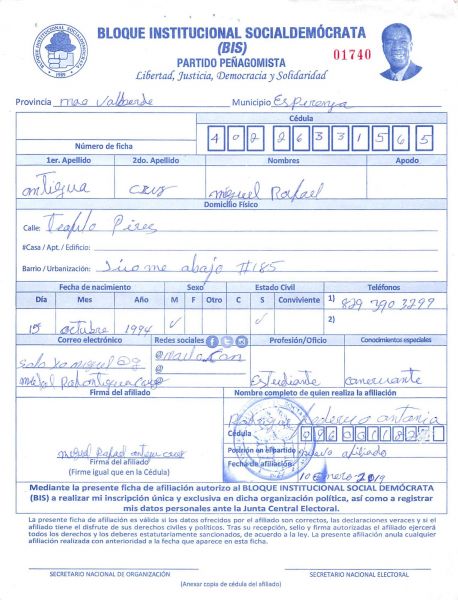 BLOQUE INSTITUCIONAL SOCIALDEMÓCRATA
(BIS)
PARTIDO PEÑAGOMISTA
Libertad, Justicia, Democracia y Solidaridad
01740
Provincia mao Valverde Municipio Esperanza
Cédula
Número de ficha 402263315 65
1er. Apellido 2do. Apellido Nombres Apodo
antigua cruz miguel Rafael
Domicilio Físico
Calle: Teofilo Pérez
#Casa / Apt. / Edificio:
Barrio / Urbanización: abajo #185
Fecha de nacimiento Sexo Estado Civil Teléfonos
Día Mes Año M F Otro C S Conviviente 1) 829 390 3299
15 octubre 1994 ✓ ✓ 2)
Correo electrónico Redes sociales Profesión/Oficio Conocimientos especiales
@
@
@
Estudiante
Firma del afiliado Nombre completo de quien realiza la afiliación
Rodriguez antonia
Cédula
Posición en el partido nuevo afiliado
Firma del afiliado Fecha de afiliación: 10 Enero 2019
(Firme igual que en la Cédula)
Mediante la presente ficha de afiliación autorizo al BLOQUE INSTITUCIONAL SOCIAL DEMÓCRATA
(BIS) a realizar mi inscripción única y exclusiva en dicha organización política, así como a registrar
mis datos personales ante la Junta Central Electoral.
La presente ficha de afiliación es válida si los datos ofrecidos por el afiliado son correctos, las declaraciones veraces y si el
afiliado tiene el disfrute de sus derechos civiles y políticos. Tras su recepción, sello y firma autorizadas el afiliado ejercerá
todos los derechos y los deberes estatutariamente sancionados, de acuerdo a la ley. La presente afiliación anula cualquier
afiliación realizada con anterioridad a la fecha que aparece en esta ficha.
SECRETARIO NACIONAL DE ORGANIZACIÓN SECRETARIO NACIONAL ELECTORAL
(Anexar copia de cédula del afiliado)